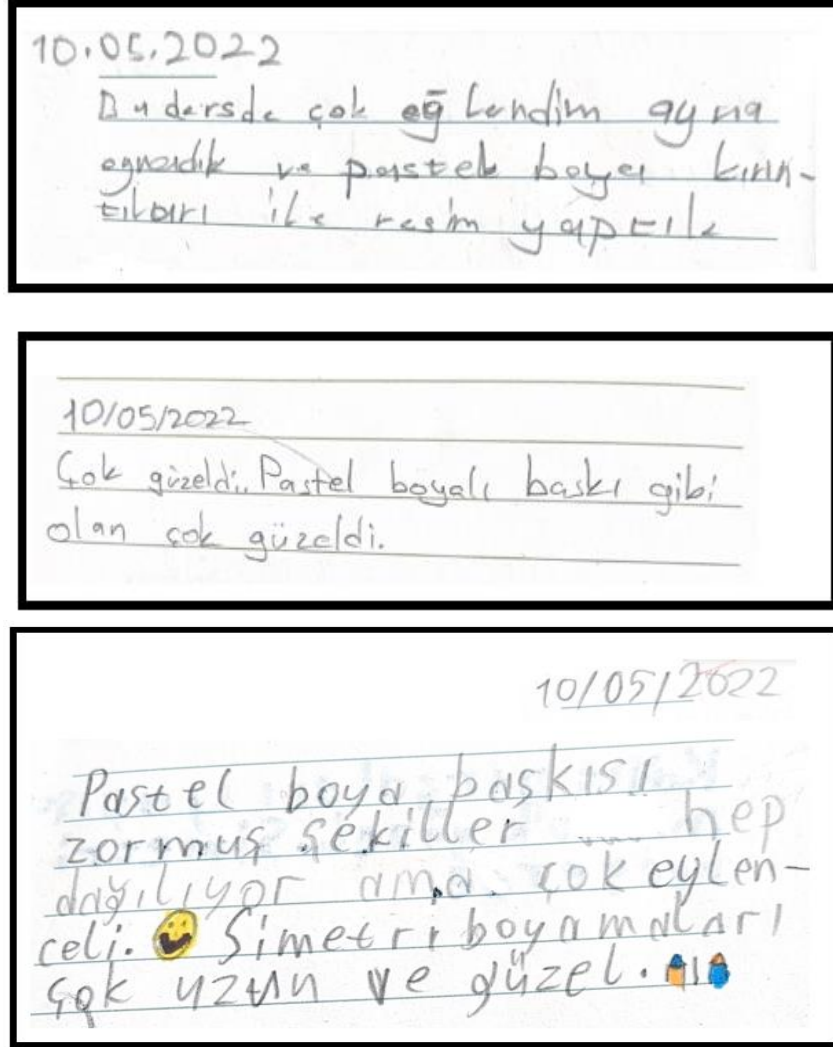 10.05.2022
Bu dersde çok eğlendim ayna
oynadık ve pastel boya kırın-
tıları ile resim yaptık
10/05/2022
Çok güzeldi. Pastel boyalı baskı gibi
olan çok güzeldi.
10/05/2022
Pastel boya baskısı
zormuş şekiller .... hep
dağılıyor ama çok eylen-
celi. Simetri boyamaları
çok uzun ve güzel.